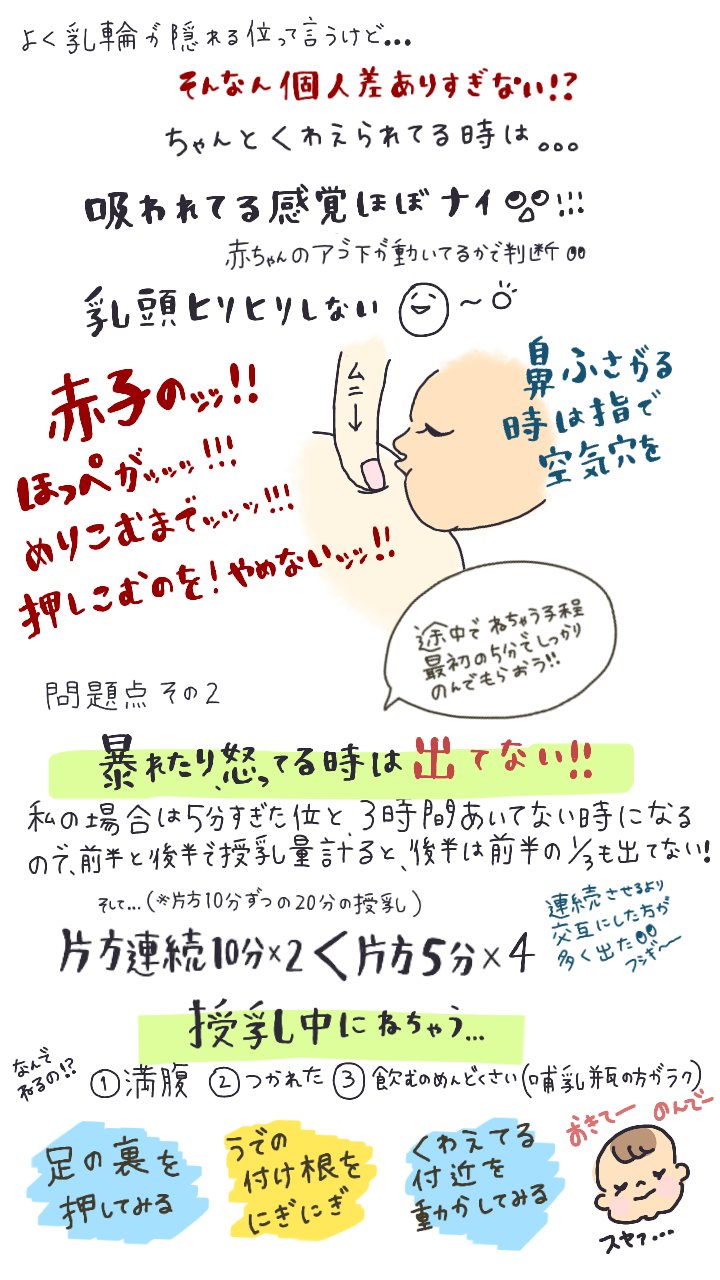 よく乳輪が隠れる位って言うけど...
そんなん個人差ありすぎない!?
ちゃんとくわえられてる時は。。。
吸われてる感覚ほぼナイ!!!
赤ちゃんのアゴ下が動いてるかで判断
乳頭ヒリヒリしない 〜
ムニ→
鼻ふさがる
時は指で
空気穴を
赤子のッッ!!
ほっぺがッッッッ!!!
めりこむまでッッッッ!!!
押しこむのを!やめないッッッ!!
途中でねちゃう子程
最初の5分でしっかり
のんでもらおう!!
問題点 その2
暴れたり、怒ってる時は出てない!!
私の場合は5分すぎた位と、3時間あいてない時になる
ので、前半と後半で授乳量計ると、後半は前半の1/3も出てない!
そして...(※片方10分ずつの20分の授乳)
片方連続10分×2<片方5分×4
連続させるより
交互にした方が
多く出た
フシギ〜
授乳中にねちゃう...
なんで
ねるの!?
①満腹 ②つかれた ③飲むのめんどくさい(哺乳瓶の方がラク)
足の裏を
押してみる
うでの
付け根を
にぎにぎ
くわえてる
付近を
動かしてみる
おきてー のんでー
スヤァ...